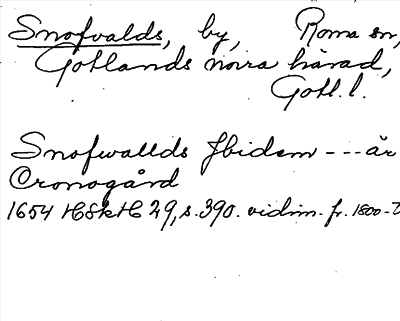 Snofvalds, by, Roma sn,
Gotlands norra härad,
Gotl. l.
Snofwallds Jbidem --- är
Cronogård
1654 HSkH 29, s. 390. vidim. fr. 1800-